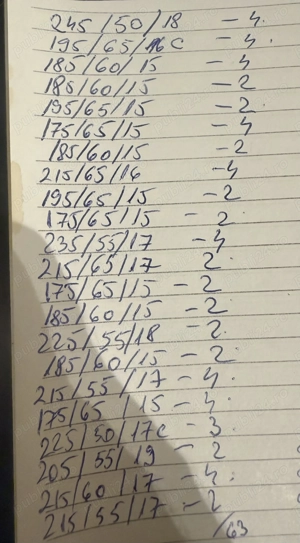 245/50/18 - 4.
195/65/16C - 4.
185/60/15 - 4
185/60/15 - 2
195/65/15 - 2.
175/65/15 - 4
185/60/15 - 2
215/65/16 - 4
195/65/15 - 2
175/65/15 - 2.
235/55/17 - 4
215/65/17 2.
175/65/15 - 2
185/60/15 - 2
225/55/18 - 2.
185/60/15 - 2
215/55/17 - 4.
175/65/15 - 4.
225/50/17C - 3.
205/55/19 - 2
215/60/17 - 4.
215/55/17 - 2
/63